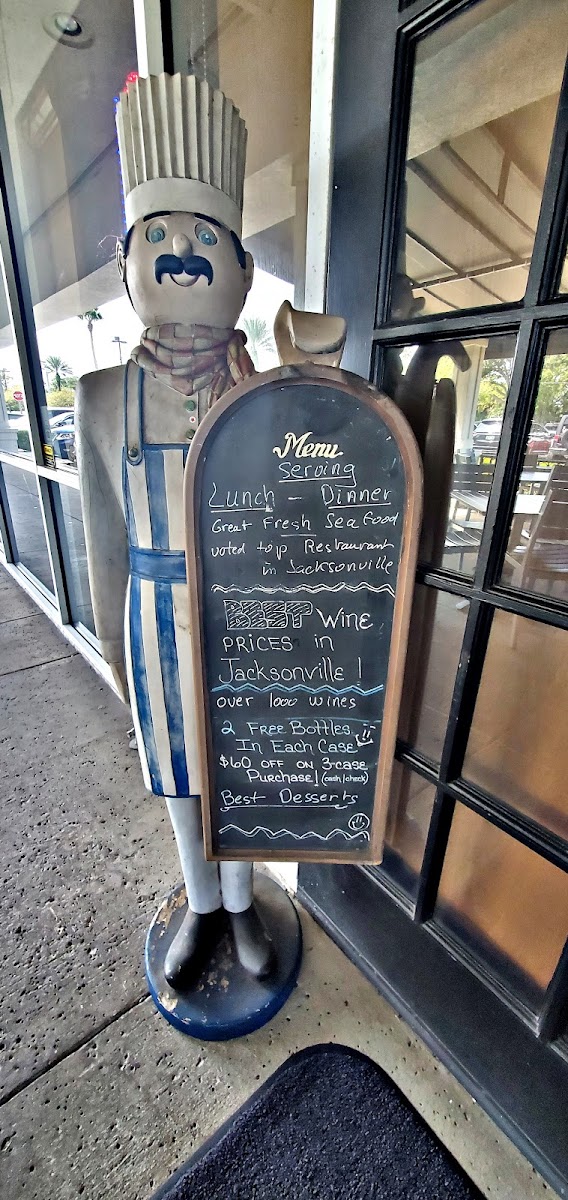 Menu
Serving
Lunch - Dinner
Great Fresh Sea Food
voted top Restaurant
in Jacksonville
BEST Wine
PRICES in
Jacksonville!
over 1000 wines
2 Free Bottles
In Each Case
$60 OFF ON 3-case
Purchase! (cash/check)
Best Desserts